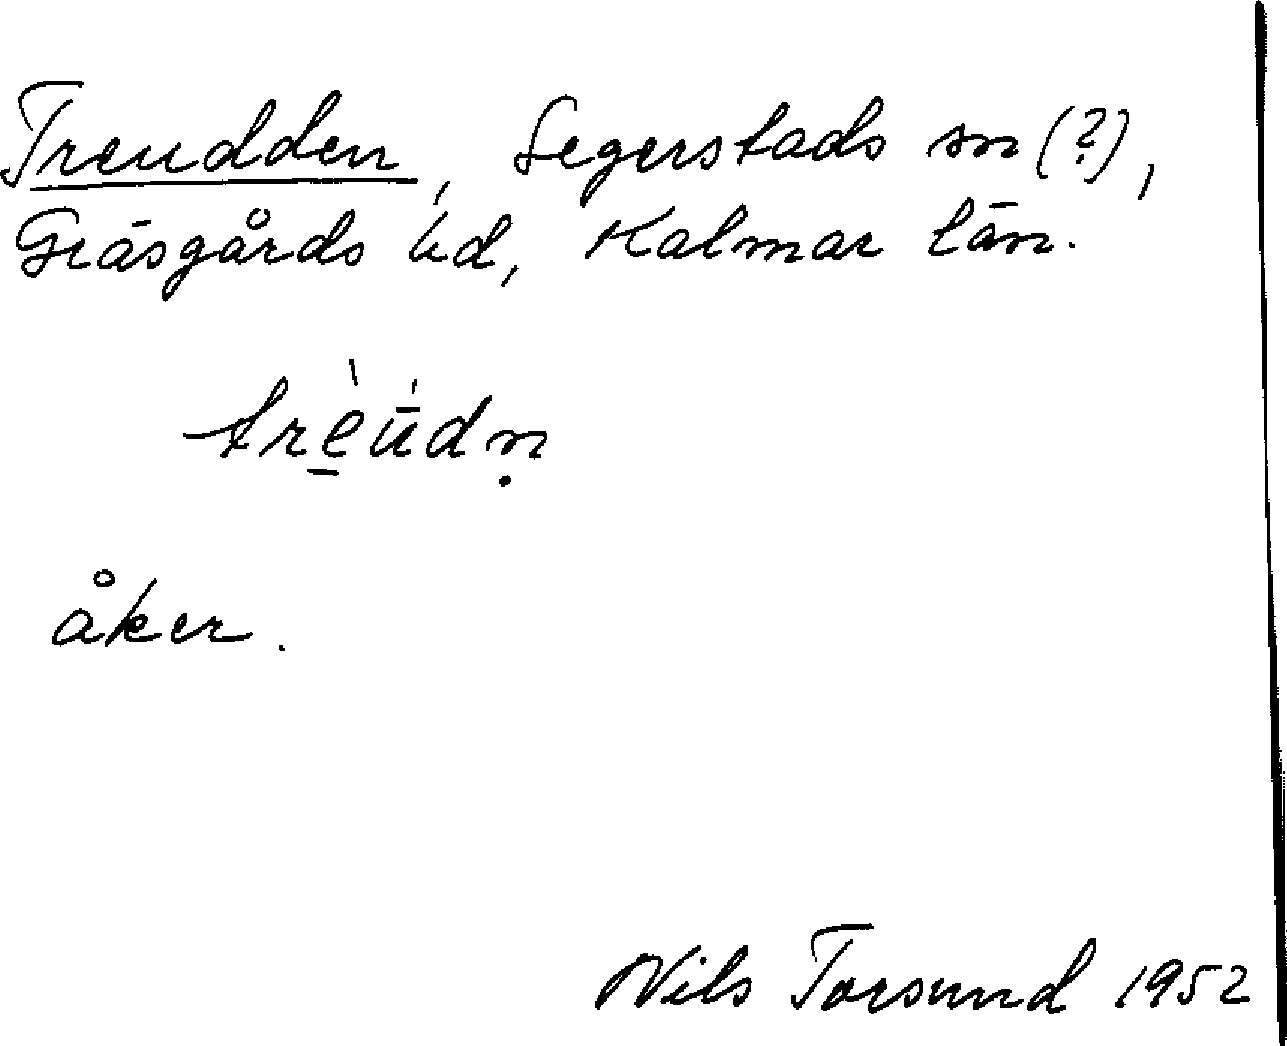 Treudden, Segerstads sn (?),
Gräsgårds hd, Kalmar län.
trè̱ū́dṇ
åker.
Nils Torsund 1952